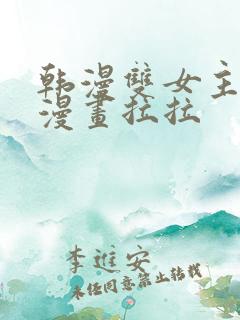 韩漫雙女主
漫畫拉拉
李進安
未经同意禁止转载